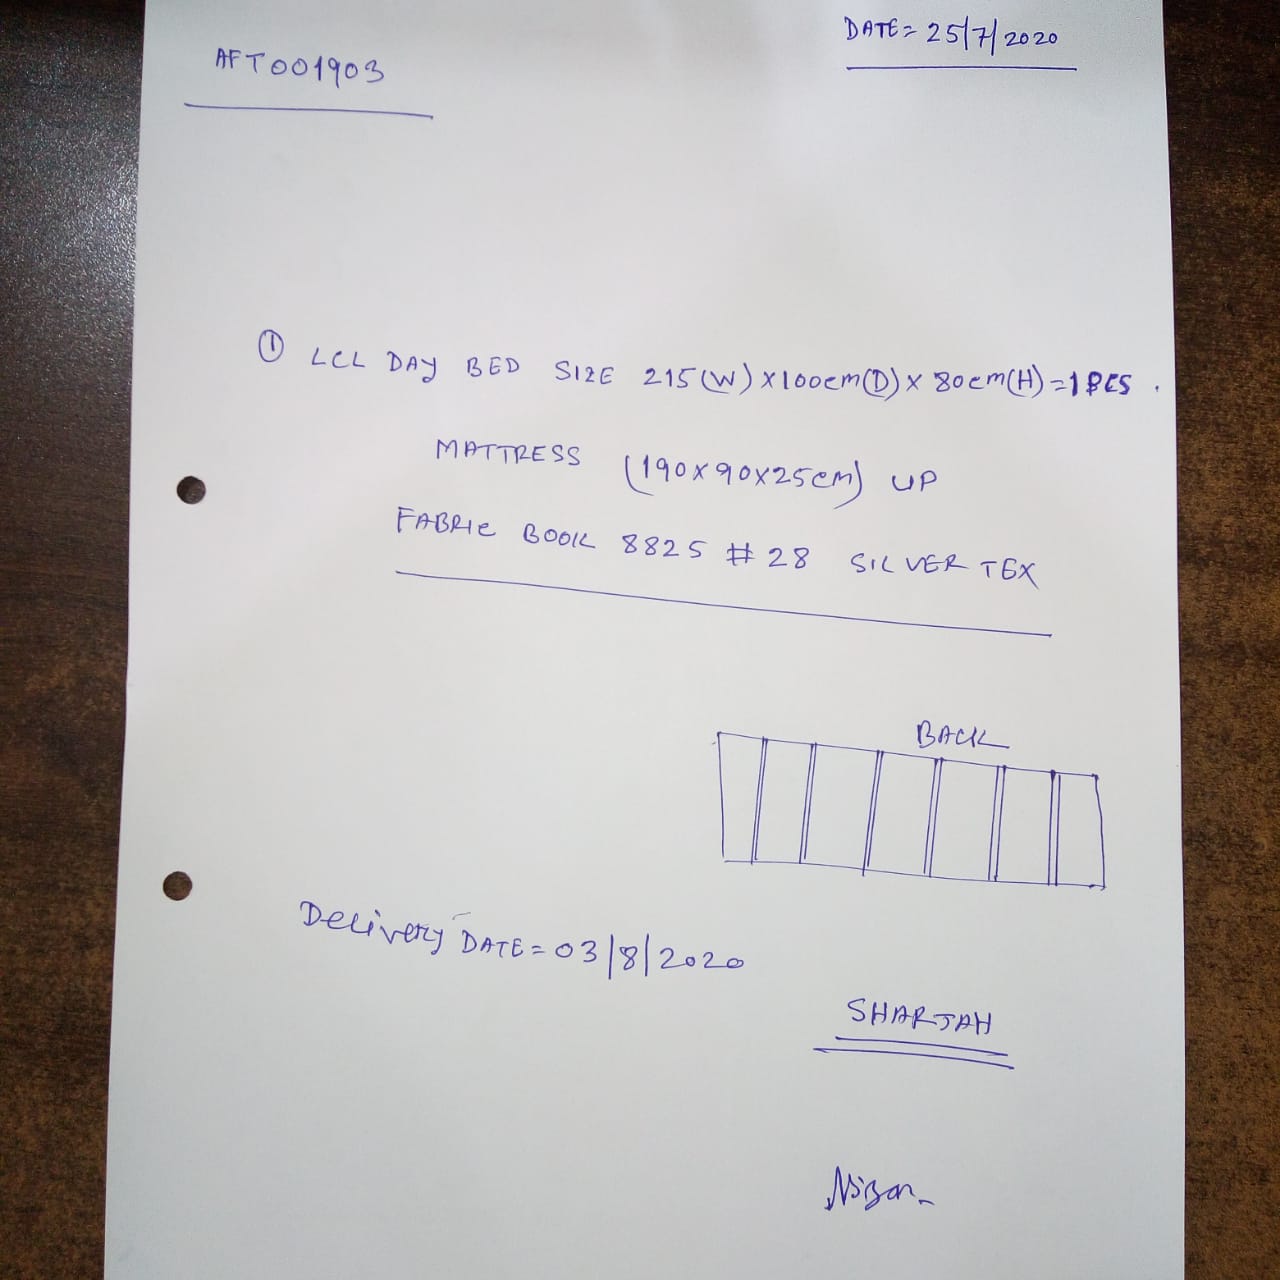 AFT001903
DATE = 25/7/2020
① LCL DAY BED SIZE 215(W) x 100cm(D) x 80cm(H) = 1 PCS.
MATTRESS (190x90x25cm) UP
FABRIC BOOK 8825 # 28 SILVER TEX
BACK
Delivery DATE = 03/8/2020
SHARJAH